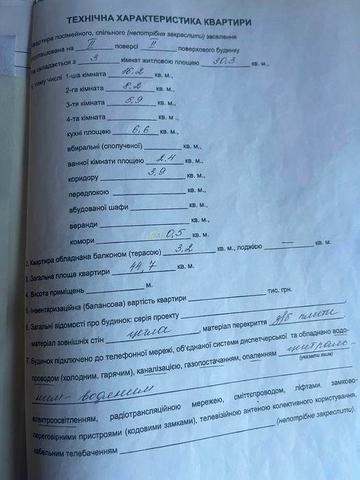 ТЕХНІЧНА ХАРАКТЕРИСТИКА КВАРТИРИ
Квартира посімейного, спільного (непотрібне закреслити) заселення
розташована на II поверсі II поверхового будинку
та складається з 3 кімнат житловою площею 30,3 кв. м.,
у тому числі 1-ша кімната 16.2 кв. м.,
2-га кімната 8.2 кв. м.,
3-тя кімната 5,9 кв. м.,
4-та кімната кв. м.,
кухні площею 6,6 кв. м.,
вбиральні (сполученої) кв. м.,
ванної кімнати площею 2,4 кв. м.,
коридору 3,9 кв. м.,
передпокою кв. м.,
вбудованої шафи кв. м.,
веранди кв. м.,
комори 0,5 кв. м.
2. Квартира обладнана балконом (терасою) 3,2 кв. м., лоджією — кв. м.
3. Загальна площа квартири 44,7 кв. м.
4. Висота приміщень м.
5. Інвентаризаційна (балансова) вартість квартири тис. грн.
6. Загальні відомості про будинок: серія проекту
матеріал зовнішніх стін цегла, матеріал перекриття з/б плити
7. Будинок підключено до телефонної мережі, об'єднаної системи диспетчерської та обладнано водо-
проводом (холодним, гарячим), каналізацією, газопостачанням, опаленням централь-
(указати яким)
ним-водяним
електроосвітленням, радіотрансляційною мережею, сміттєпроводом, ліфтами, замково-
переговорними пристроями (кодовими замками), телевізійною антеною колективного користування,
кабельним телебаченням (непотрібне закреслити).